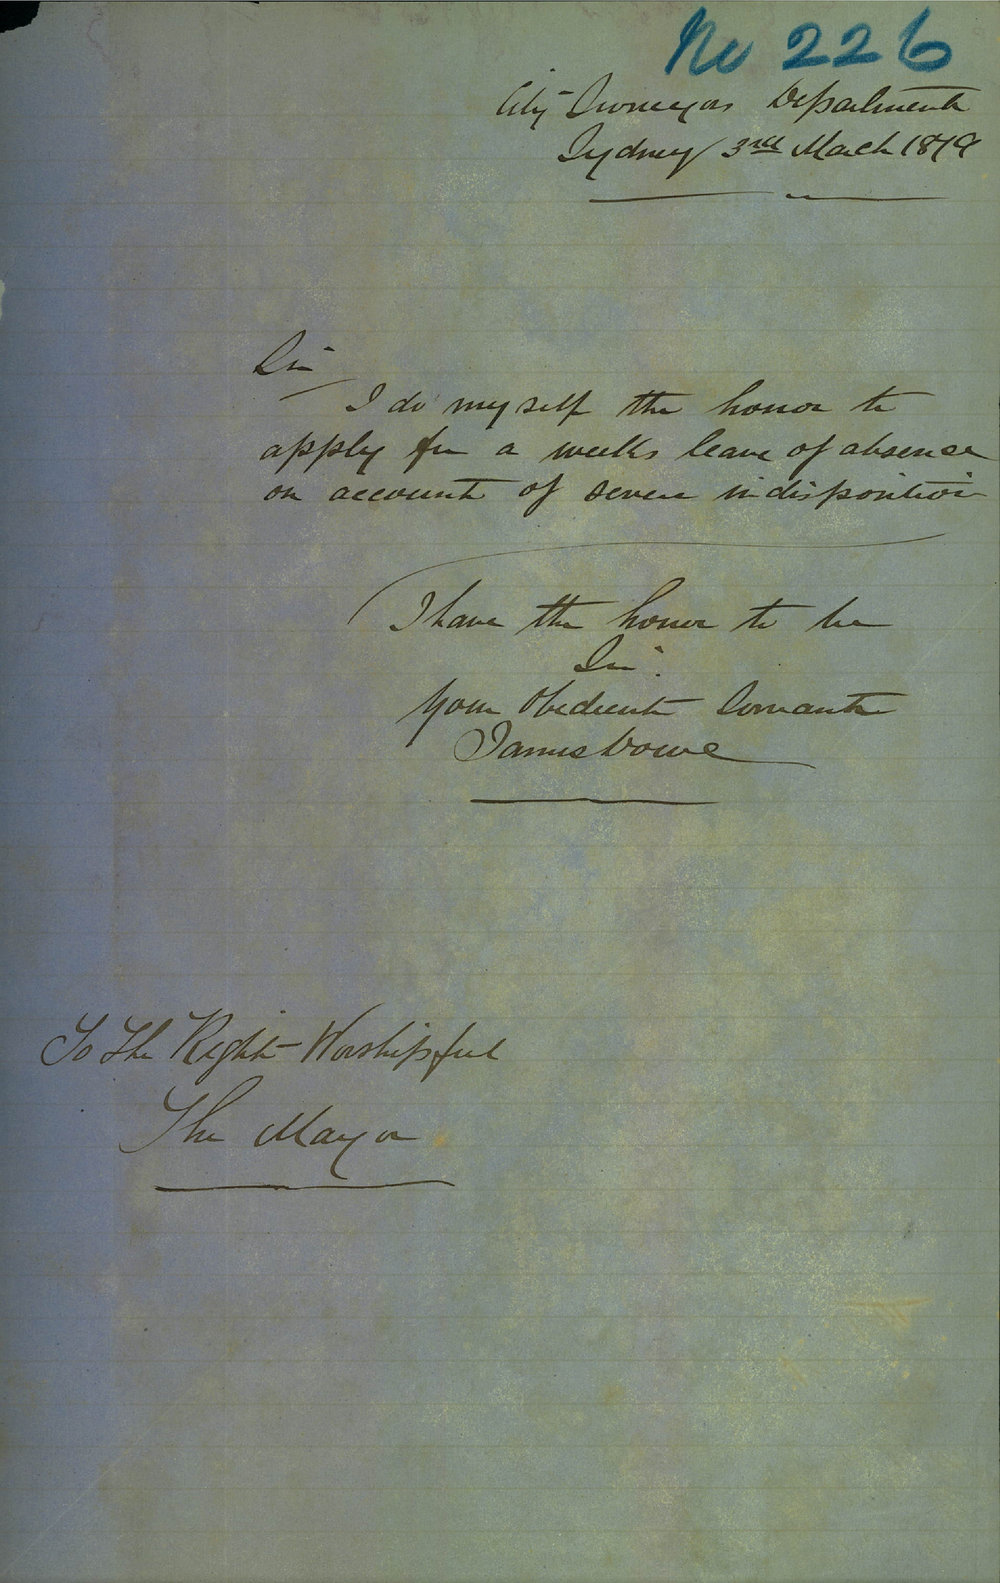 No 226
City Surveyors Department
Sydney 3rd March 1879
Sir
I do myself the honor to
apply for a weeks leave of absence
on account of severe indisposition
I have the honor to be
Sir
Your Obedient Servant
James Dowe
To The Right Worshipful
The Mayor